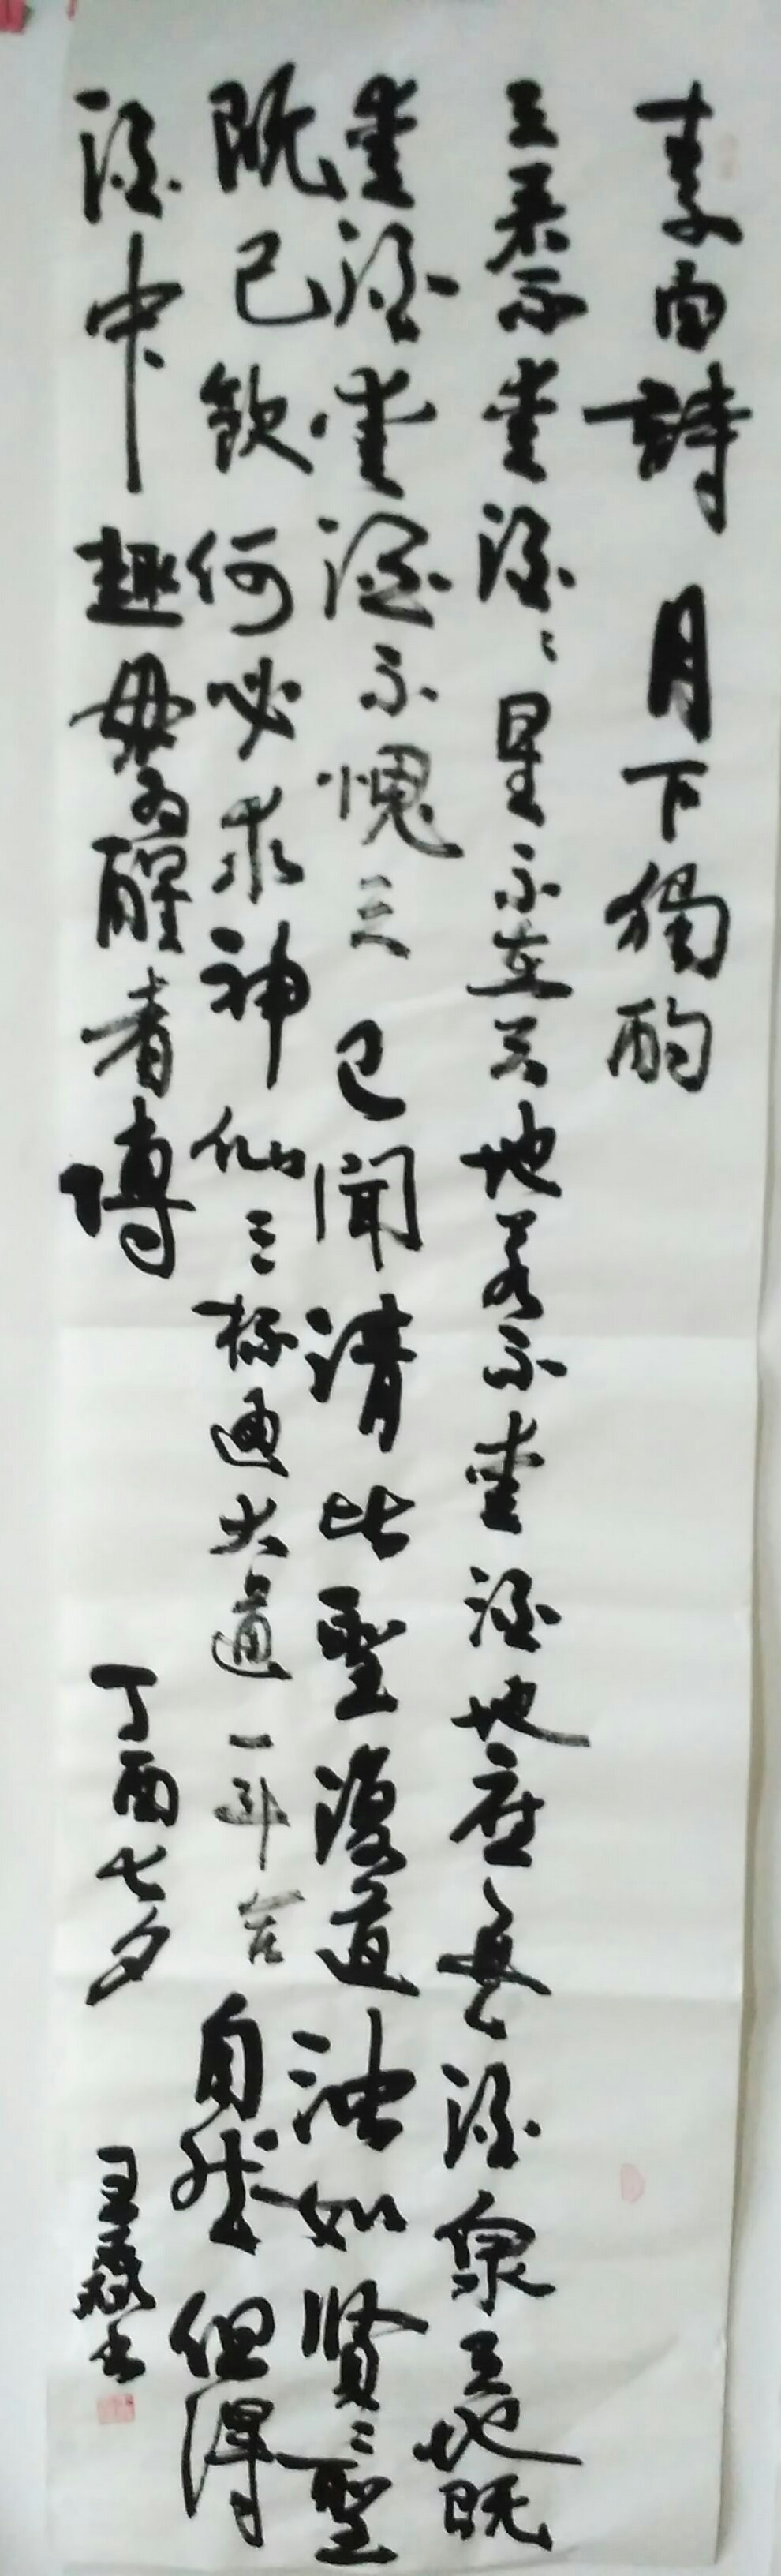 李白詩 月下獨酌
天若不愛酒〻星不在天地若不愛酒地應無酒泉天地既
愛酒愛酒不愧天已聞清比聖復道濁如賢〻聖
既已飲何必求神仙三杯通大道一斗合自然但得
酒中趣毋為醒者傳 丁酉七夕 王书